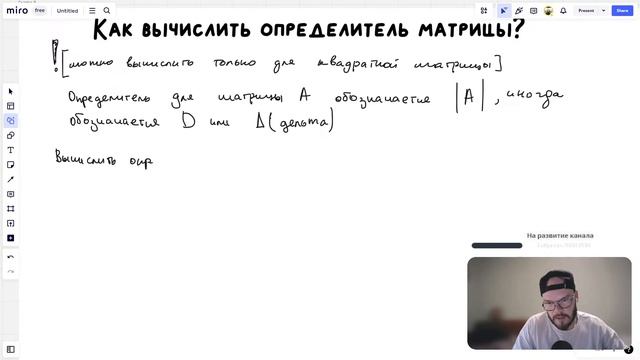 miro free Untitled Present Share
Как вычислить определитель матрицы?
! [можно вычислить только для квадратной матрицы]
Определитель для матрицы A обозначается |A|, иногда
обозначается D или Δ(дельта)
Вычислить опр
На развитие канала